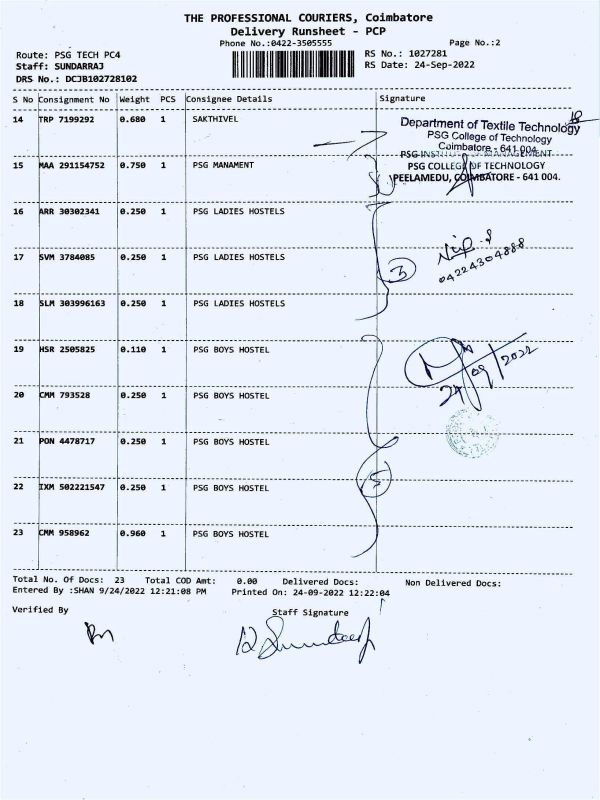 THE PROFESSIONAL COURIERS, Coimbatore
Delivery Runsheet - PCP
Phone No.:0422-3505555
Page No.:2
Route: PSG TECH PC4
RS No.: 1027281
Staff: SUNDARRAJ
RS Date: 24-Sep-2022
DRS No.: DCJB102728102
S No Consignment No Weight PCS Consignee Details Signature
14 TRP 7199292 0.680 1 SAKTHIVEL
Department of Textile Technology
PSG College of Technology
Coimbatore - 641 004.
15 MAA 291154752 0.750 1 PSG MANAMENT
PSG INSTITUTE OF MANAGEMENT
PSG COLLEGE OF TECHNOLOGY
PEELAMEDU, COIMBATORE - 641 004.
16 ARR 30302341 0.250 1 PSG LADIES HOSTELS
17 SVM 3784085 0.250 1 PSG LADIES HOSTELS
3
04224304888
18 SLM 303996163 0.250 1 PSG LADIES HOSTELS
19 HSR 2505825 0.110 1 PSG BOYS HOSTEL
24/09/2022
20 CMM 793528 0.250 1 PSG BOYS HOSTEL
21 PON 4478717 0.250 1 PSG BOYS HOSTEL
22 IXM 502221547 0.250 1 PSG BOYS HOSTEL
5
23 CMM 958962 0.960 1 PSG BOYS HOSTEL
Total No. Of Docs: 23 Total COD Amt: 0.00 Delivered Docs: Non Delivered Docs:
Entered By :SHAN 9/24/2022 12:21:08 PM Printed On: 24-09-2022 12:22:04
Verified By
Staff Signature